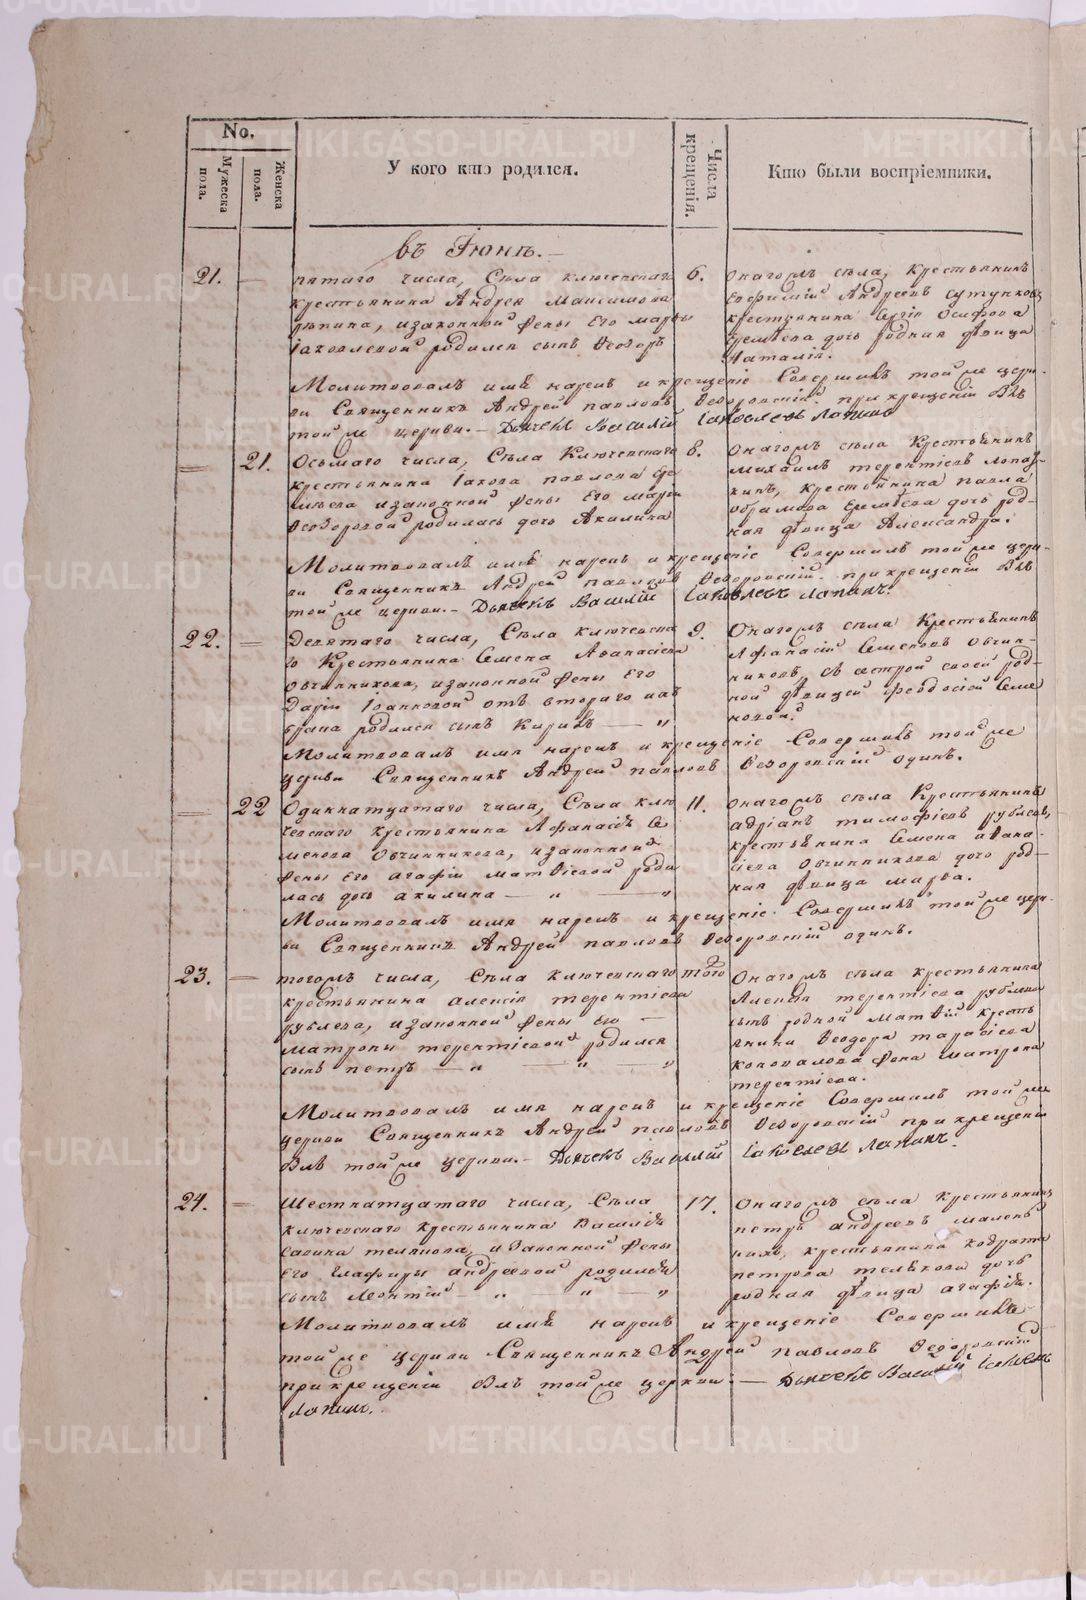 No.
Мужеска пола.
Женска пола.
У кого кто родился.
Числа крещенія.
Кто были воспріемники.
въ Іюнѣ.
21. — пятаго числа, Села Ключевскаго
крестьянина Андрея Максимова
изаконной жены его марѳы
Іаковлевой родился сынъ Ѳеодоръ
6. Онагожъ села, Крестьянинъ
Евфимій Андреевъ
крестьянина Сергія Осифова
дочь родная дѣвица
Наталія.
Молитвовалъ имя нарекъ и крещеніе Совершилъ тойже церк-
ви Священникъ Андрей павловъ Ѳедоровскій. при крещеніи былъ
тойже церкви. — Дьячекъ Василій Іаковлевъ Лапинъ
21. Осьмаго числа, Села Ключевскаго
крестьянина Іакова павлова
изаконной жены его маріи
Ѳеодоровой родилась дочь Акилина
8. Онагожъ села Крестьянинъ
михаилъ терентіевъ
крестьянина павла
абрамова дочь род-
ная дѣвица Александра.
Молитвовалъ имя нарекъ и крещеніе Совершилъ тойже церк-
ви Священникъ Андрей павловъ Ѳедоровскій. при крещеніи былъ
тойже церкви. — Дьячекъ Василій Іаковлевъ Лапинъ.
22. — Девятаго числа, Села ключевска
го Крестьянина Семена Аѳанасіева
Овчинникова, изаконной жены его
Даріи Іоанновой отъ втораго
брака родился сынъ Кирикъ — „
9. Онагожъ села Крестьянинъ
Афанасій Семеновъ Овчин-
никовъ, съ сестрой своей род-
ной дѣвицей Феодосіей Семе
новой.
Молитвовалъ имя нарекъ и крещеніе Совершилъ тойже
церкви Священникъ Андрей павловъ Ѳедоровскій одинъ.
22 Одиннатцатаго числа, Села клю
чевскаго крестьянина Афанасія Се
менова Овчинникова, изаконной
жены его агафіи матвіевой роди
лась дочь акилина — „ — „
11. онагожъ села Крестьянинъ
адріанъ тимофіевъ рублевъ,
крестьянина Семена аѳана-
сіева Овчинникова дочь род-
ная дѣвица марѳа.
Молитвовалъ имя нарекъ и крещеніе Совершилъ тойже церк-
ви Священникъ Андрей павловъ Ѳедоровскій одинъ.
23. — тогожъ числа, Села ключевскаго
крестьянина алексія терентіева
рублева, изаконной жены его —
матроны терентіевой родился
сынъ петръ — „ — „ — „
того Онагожъ села крестьянина
Алексія терентіева рублева
сынъ родной Матвій крестья
янина Ѳеодора тарасіева
коновалова жена матрона
терентіева.
Молитвовалъ имя нарекъ и крещеніе Совершилъ тойже
церкви Священникъ Андрей павловъ Ѳедоровскій при крещеніи
былъ тойже церкви. — Дьячекъ Василій Іаковлевъ Лапинъ.
24. — Шестнатцатаго числа, Села
ключевскаго крестьянина Василія
Савина изаконной жены
его Глафиры андреевой родился
сынъ Леонтій — „ — „ — „
17. Онагожъ села крестьянинъ
петръ андреевъ
крестьянина кодрата
петрова дочь
родная дѣвица агафія.
Молитвовалъ имя нарекъ и крещеніе Совершилъ
тойже церкви Священникъ Андрей павловъ Ѳедоровскій
при крещеніи былъ тойже церкви. — Дьячекъ Василій Іаковлевъ
Лапинъ.
METRIKI.GASO-URAL.RU